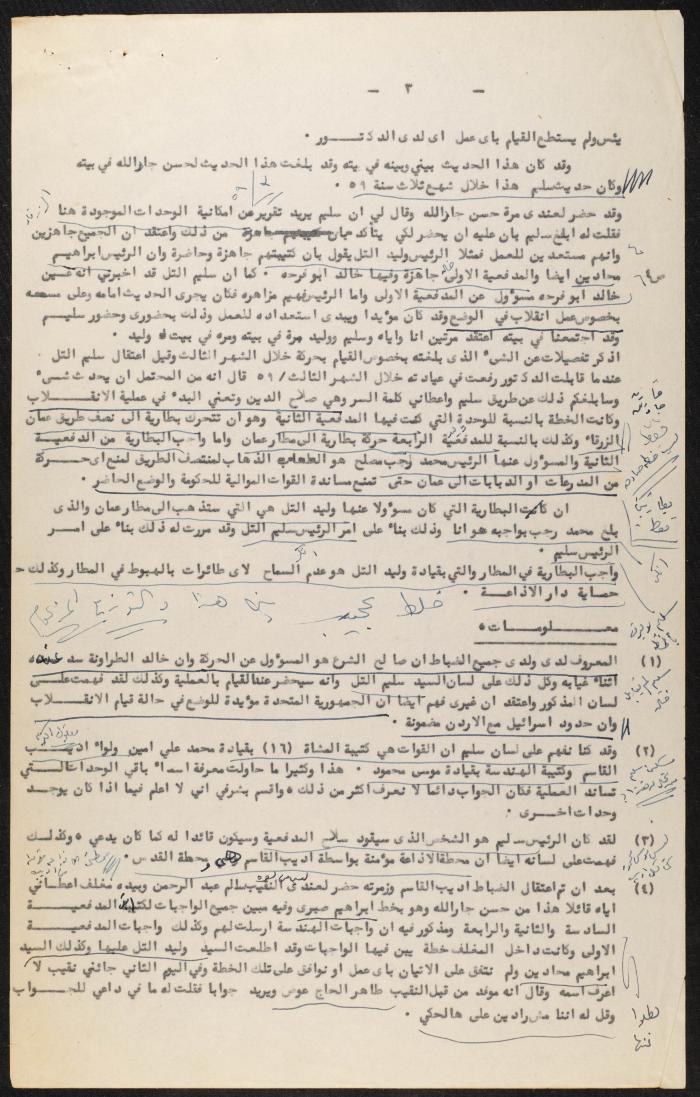 - ٣ -
يئس ولم يستطع القيام باى عمل اى لدى الدكتور .
وقد كان هذا الحديث بيني وبينه في بيته وقد بلغت هذا الحديث لحسن جارالله في بيته
وكان حديث سليم هذا خلال شهر ثلاث سنة ٥٩ .
وقد حضر لعندى مرة حسن جارالله وقال لي ان سليم يريد تقرير عن امكانية الوحدات الموجودة هنا
فقلت له ابلغ سليم بان عليه ان يحضر لكي يتأكد من ذلك واعتقد ان الجميع جاهزين
وانهم مستعدين للعمل فمثلا الرئيس وليد التل يقول بان كتيبتهم جاهزة وحاضرة وان الرئيس ابراهيم
محادين ايضا والمدفعية الاولى جاهزة وفيها خالد ابو فرحه . كما ان سليم التل قد اخبرني انه عين
خالد ابو فرحه مسؤول عن المدفعية الاولى واما الرئيس فهيم مزاهره فكان يجرى الحديث امامه وعلى مسمعه
بخصوص عمل انقلاب في الوضع وقد كان مؤيدا ويبدى استعداده للعمل وذلك بحضورى وحضور سليم
وقد اجتمعنا في بيته اعتقد مرتين انا واياه وسليم ووليد مرة في بيته ومره في بيت وليد .
اذكر تفصيلات عن الشيء الذى بلغته بخصوص القيام بحركة خلال الشهر الثالث وقبل اعتقال سليم التل
عندما قابلت الدكتور رفعت في عيادته خلال الشهر الثالث /٥٩ قال انه من المحتمل ان يحدث شيء
وسابلغكم ذلك عن طريق سليم واعطاني كلمة السر وهي صلاح الدين وتعني البدء في عملية الانقلاب
وكانت الخطة بالنسبة للوحدة التي كنت فيها المدفعية الثانية وهو ان تتحرك بطارية الى نصف طريق عمان
الزرقاء وكذلك بالنسبة للمدفعية الرابعة حركة بطارية الى مطار عمان واما واجب البطارية من الدفعية
الثانية والمسؤول عنها الرئيس محمد رجب مصلح هو الذهاب لمنتصف الطريق لمنع اى حركة
من المدرعات او الدبابات الى عمان حتى تمنع مساندة القوات الموالية للحكومة والوضع الحاضر .
ان كانت البطارية التي كان مسؤولا عنها وليد التل هي التي ستذهب الى مطار عمان والذى
بلغ محمد رجب بواجبه هو انا وذلك بناء على امر الرئيس سليم التل وقد مررت له ذلك بناء على امر
الرئيس سليم .
واجب البطارية في المطار والتي بقيادة وليد التل هو عدم السماح لاى طائرات بالهبوط في المطار وكذلك
حماية دار الاذاعة .
خلط عجيب بين هذا و
معلومات ه
(١) المعروف لدى ولدى جميع الضباط ان صالح الشرع هو المسؤول عن الحركة وان خالد الطراونة سد عنه
اثناء غيابه وكل ذلك على لسان السيد سليم التل وانه سيحضر عند القيام بالعملية وكذلك لقد فهمت على
لسان المذكور واعتقد ان غيرى فهم ايضا ان الجمهورية المتحدة مؤيدة للوضع في حالة قيام الانقلاب
وان حدود اسرائيل مع الاردن مضمونة .
(٢) وقد كنا نفهم على لسان سليم ان القوات هي كتيبة المشاة (١٦) بقيادة محمد علي امين ولواء اديب
القاسم وكتيبة الهندسة بقيادة موسى محمود . هذا وكثيرا ما حاولت معرفة اسماء باقي الوحدات التي
تساند العملية فكان الجواب دائما لا نعرف اكثر من ذلك ه واقسم بشرفي اني لا اعلم فيما اذا كان يوجد
وحدات اخرى .
(٣) لقد كان الرئيس سليم هو الشخص الذى سيقود سلاح المدفعية وسيكون قائدا له كما كان يدعي ه وكذلك
فهمت على لسانه ايضا ان محطة الاذاعة مؤمنة بواسطة اديب القاسم ومحطة القدس .
(٤) بعد ان تم اعتقال الضباط اديب القاسم وزمرته حضر لعندى النقيب سالم عبد الرحمن وبيده مغلف اعطاني
اياه قائلا هذا من حسن جارالله وهو بخط ابراهيم صبرى وفيه مبين جميع الواجبات لكتيبة المدفعية
السادسة والثانية والرابعة ومذكور فيه ان واجبات الهندسة ارسلت لهم وكذلك واجبات المدفعية
الاولى وكانت داخل المغلف خطة يبين فيها الواجبات وقد اطلعت السيد وليد التل عليها وكذلك السيد
ابراهيم محادين ولم نتفق على الاتيان باى عمل او نوافق على تلك الخطة وفي اليوم الثاني جائني نقيب لا
اعرف اسمه وقال انه موفد من قبل النقيب طاهر الحاج عوض ويريد جوابا فقلت له ما في داعي للجواب
وقل له اننا مش رادين على هالحكي .